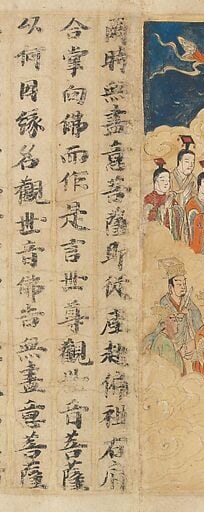 尒時無盡意菩薩即從座起偏袒右肩
合掌向佛而作是言世尊觀世音菩薩
以何因緣名觀世音佛告無盡意菩薩